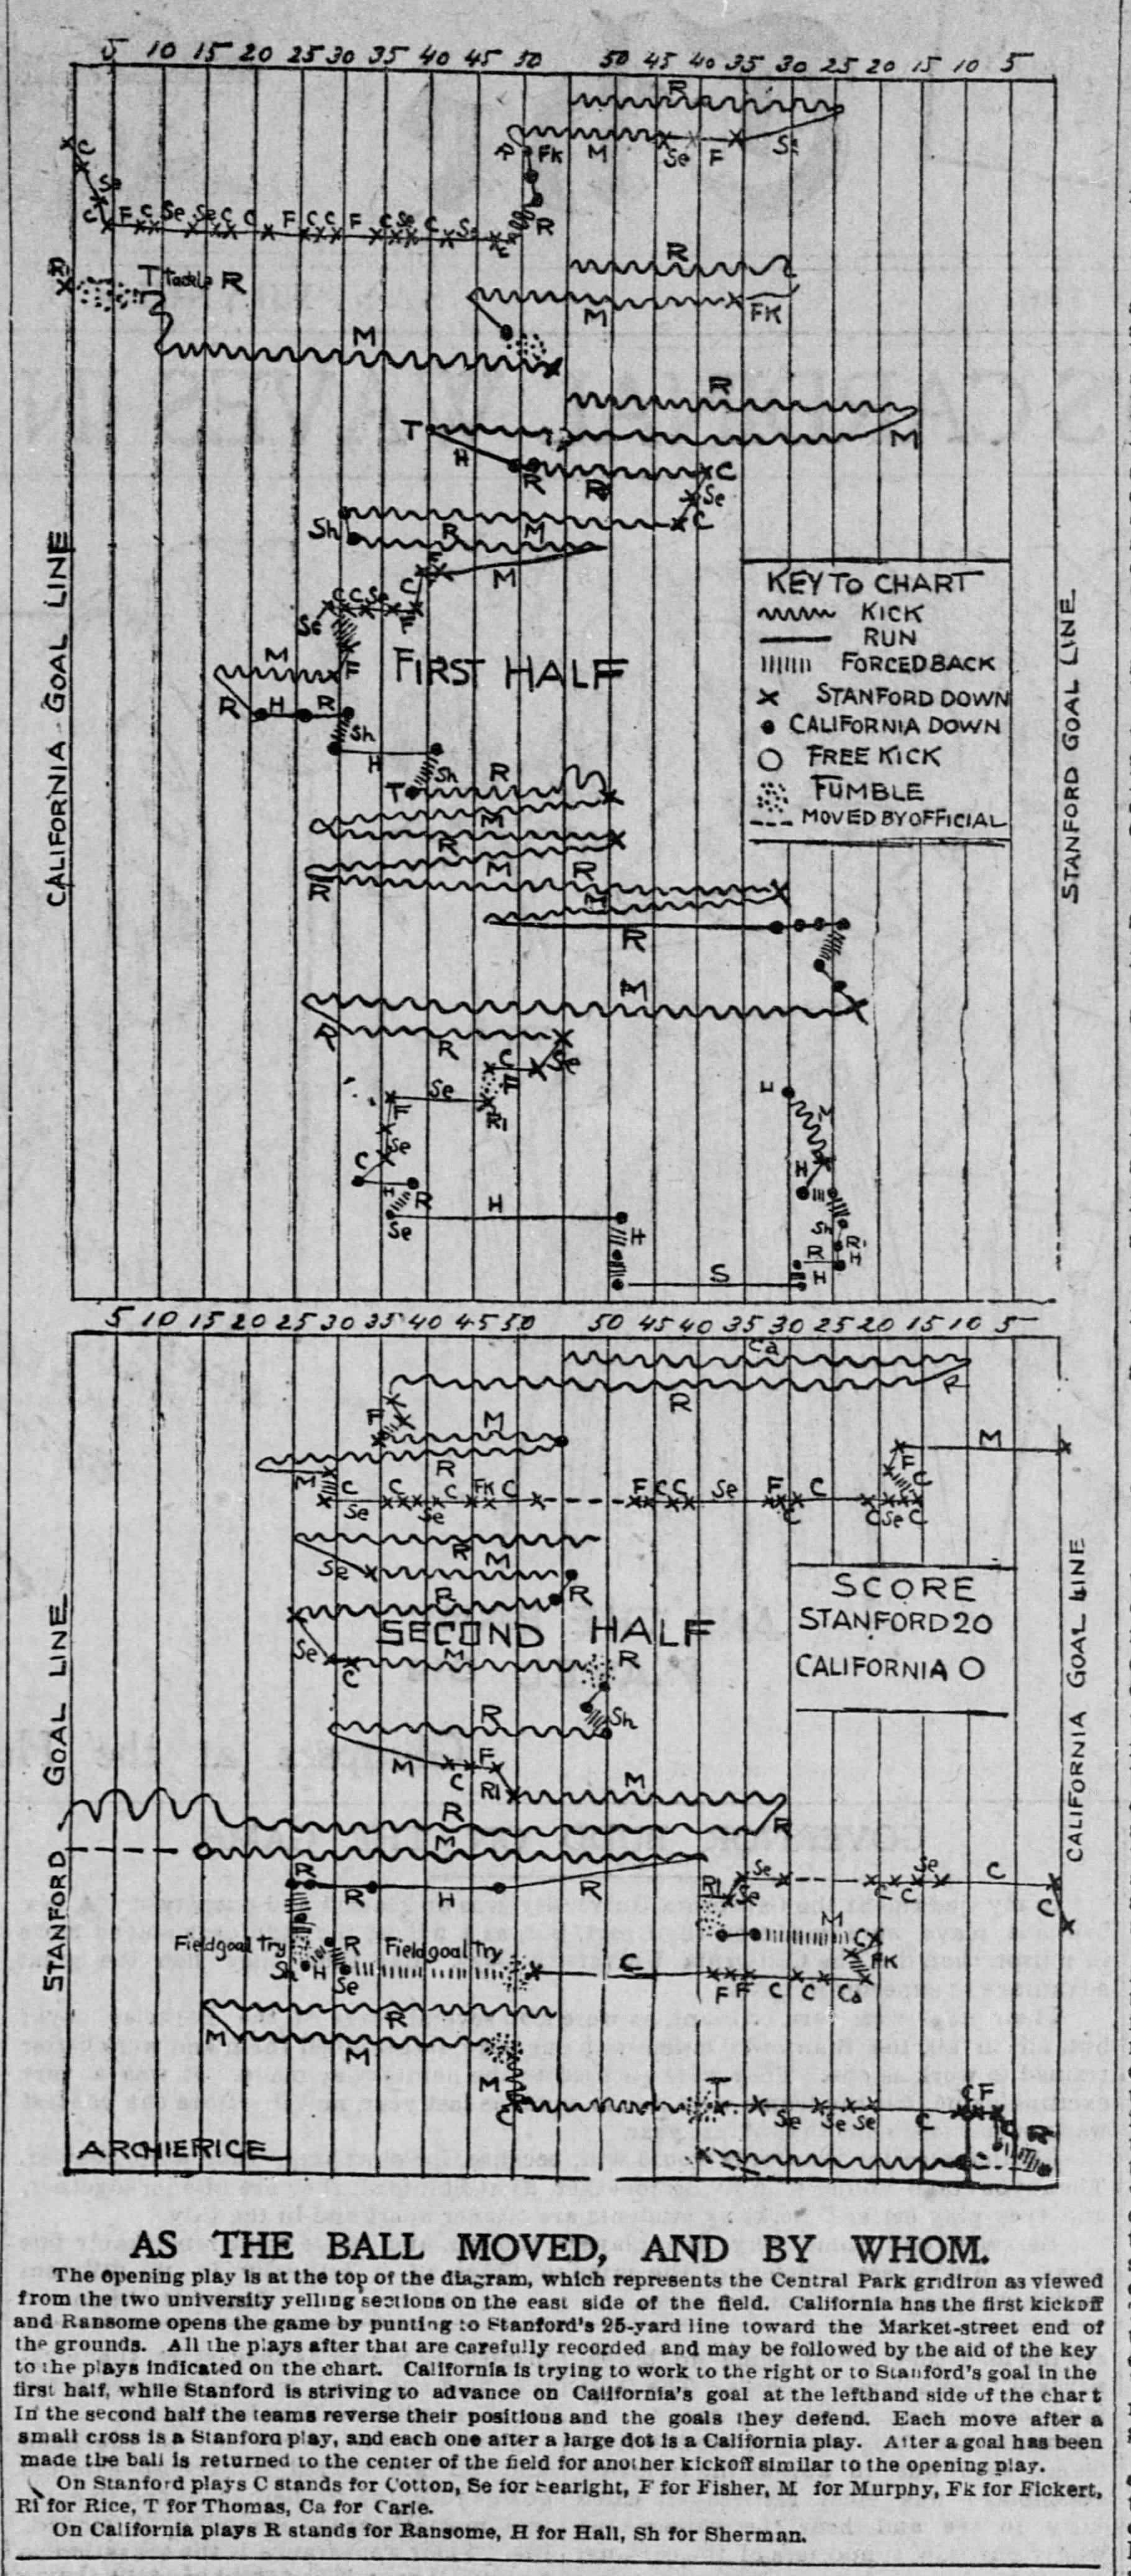 5 10 15 20 25 30 35 40 45 50 50 45 40 35 30 25 20 15 10 5
R
R FK M Se F Se
C
Se
C F C Se Se C C F C C F C Se C Se R
C
R
T tackle R
M FK
M
R
T M
H
R R C
Se
C
Sh R M
F
M
C
C C Se
Se F
F
M
FIRST HALF
R H R
Sh
H
Sh R
T
M
R
M R
R M
R
M
R
R
C Se
F
Se
Ri
F
Se
C
H R
Se H
H
S
H
H
Sh
R
R H
H
CALIFORNIA GOAL LINE
STANFORD GOAL LINE
KEY TO CHART
KICK
RUN
FORCED BACK
STANFORD DOWN
CALIFORNIA DOWN
FREE KICK
FUMBLE
MOVED BY OFFICIAL
5 10 15 20 25 30 35 40 45 50 50 45 40 35 30 25 20 15 10 5
Ca
R
R
F M
M
R
M F
C
C C C FK C F C C Se F C
Se Se C C Se C
R
Se M
R R
SECOND HALF
Se M R
C
Sh
R
M C F
Ri M
R R
M
R Se Se C
R H R Ri Se C C C
M
Field goal Try R Field goal Try C FK
Sh H Se C
F F C C Ca
R
M M
M
C T C F
Se Se Se C C R
STANFORD GOAL LINE
CALIFORNIA GOAL LINE
SCORE
STANFORD 20
CALIFORNIA 0
ARCHIE RICE
AS THE BALL MOVED, AND BY WHOM.
The opening play is at the top of the diagram, which represents the Central Park gridiron as viewed
from the two university yelling sections on the east side of the field. California has the first kickoff
and Ransome opens the game by punting to Stanford's 25-yard line toward the Market-street end of
the grounds. All the plays after that are carefully recorded and may be followed by the aid of the key
to the plays indicated on the chart. California is trying to work to the right or to Stanford's goal in the
first half, while Stanford is striving to advance on California's goal at the lefthand side of the chart
In the second half the teams reverse their positions and the goals they defend. Each move after a
small cross is a Stanford play, and each one after a large dot is a California play. After a goal has been
made the ball is returned to the center of the field for another kickoff similar to the opening play.
On Stanford plays C stands for Cotton, Se for Searight, F for Fisher, M for Murphy, Fk for Fickert,
Ri for Rice, T for Thomas, Ca for Carle.
On California plays R stands for Ransome, H for Hall, Sh for Sherman.